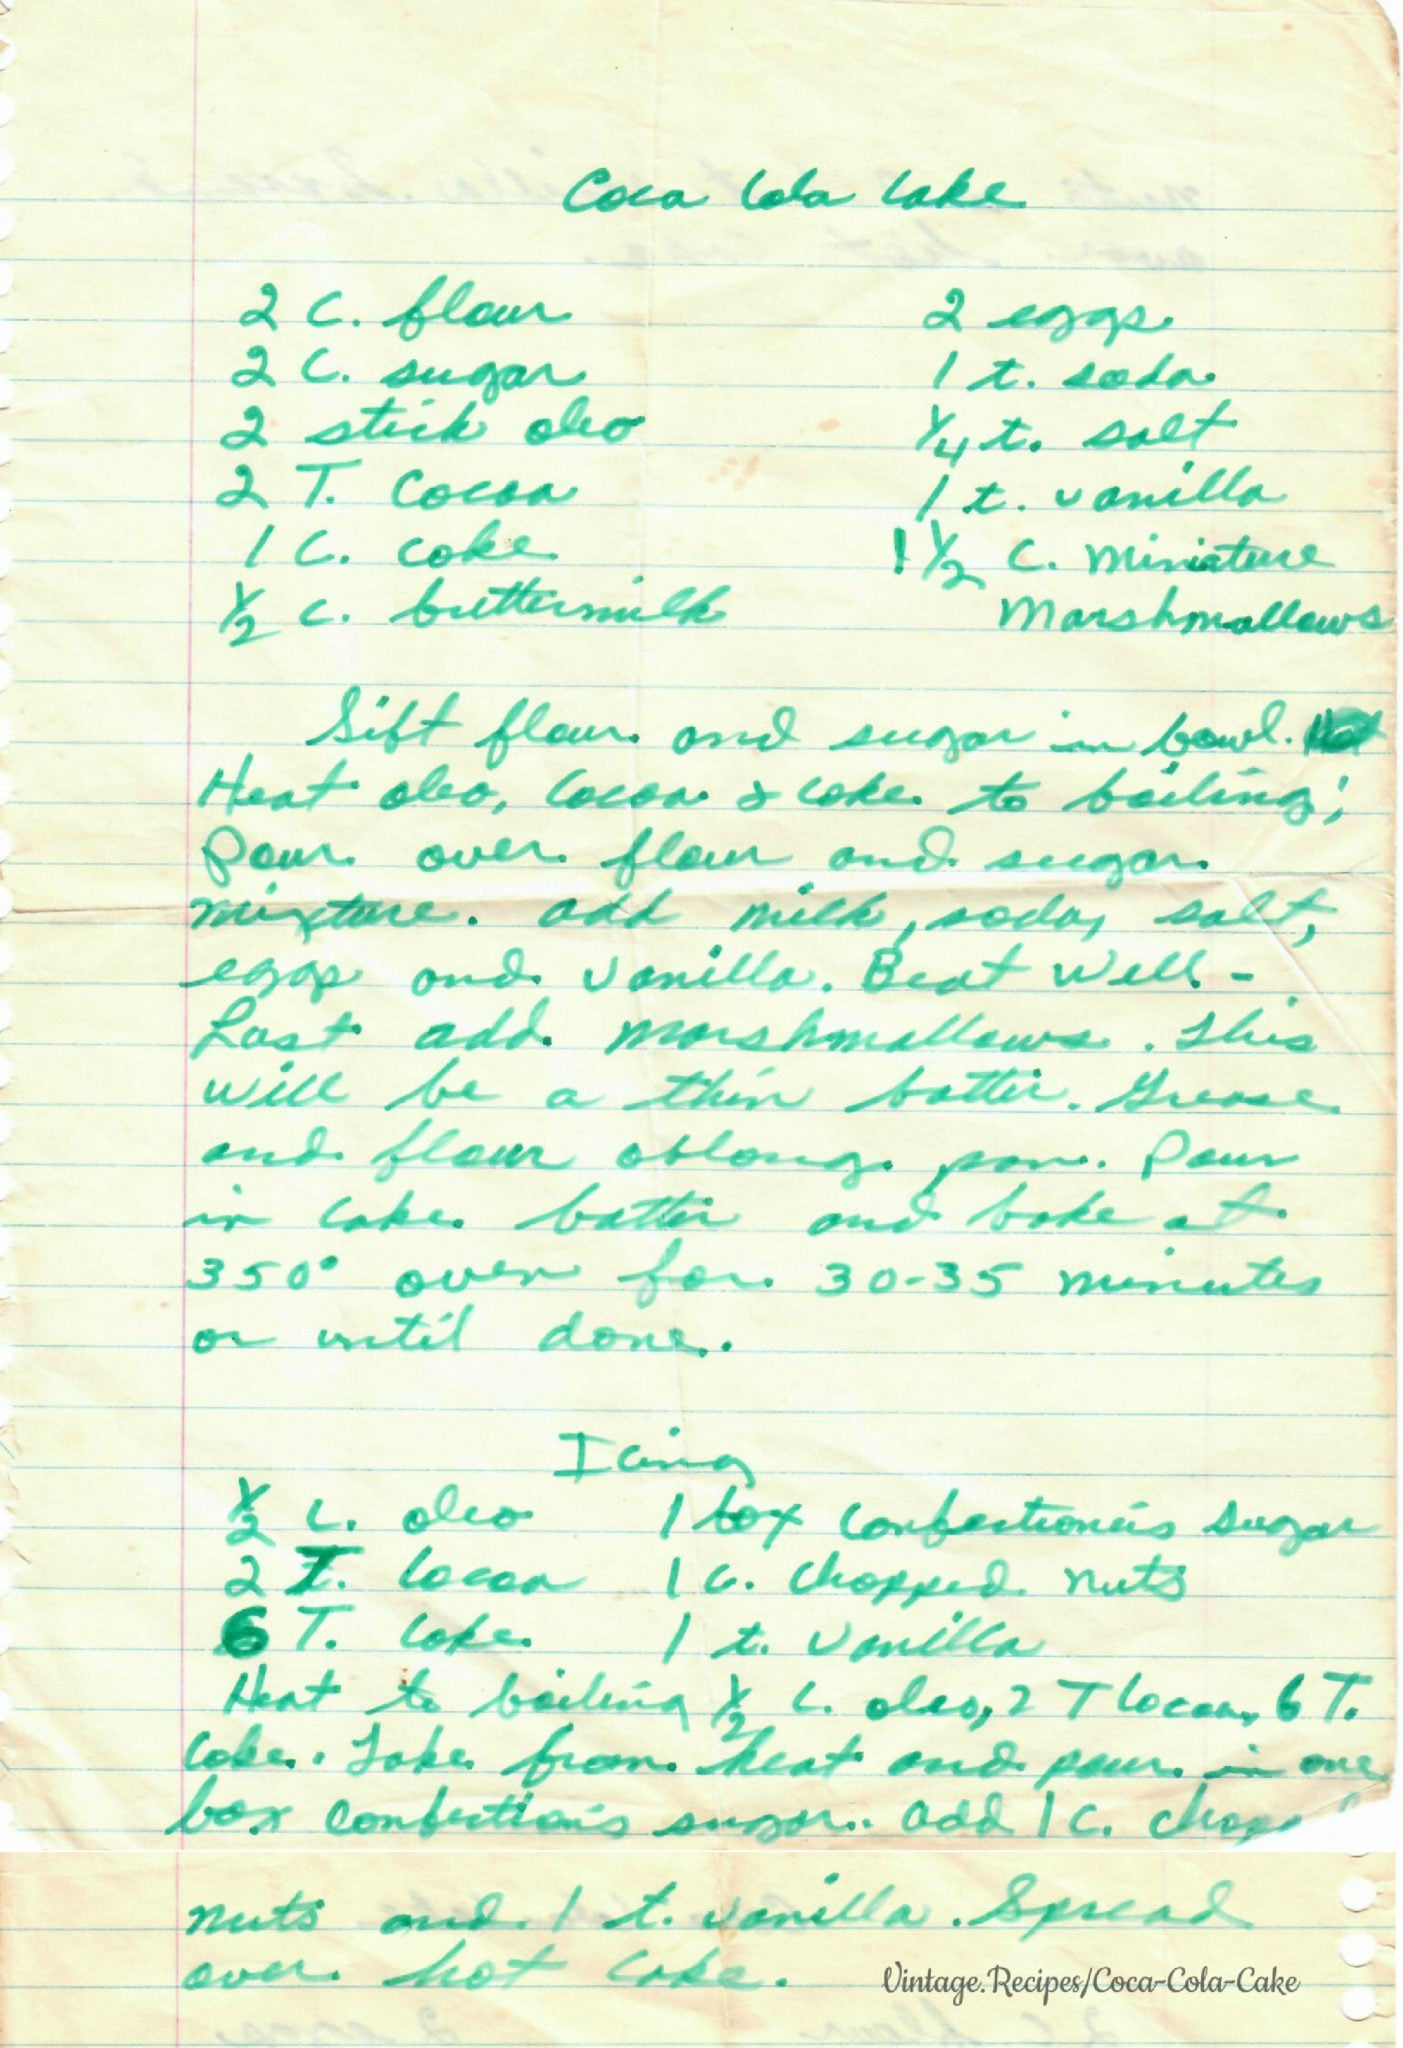 Coca Cola Cake
2 C. flour
2 C. sugar
2 stick oleo
2 T. Cocoa
1 C. coke
1/2 C. buttermilk
2 eggs
1 t. soda
1/4 t. salt
1 t. vanilla
1 1/2 C. Miniature
Marshmallows
Sift flour and sugar in bowl.
Heat oleo, Cocoa & Coke to boiling;
Pour over flour and sugar
mixture. add milk, soda, salt,
eggs and vanilla. Beat well -
Last add marshmallows. This
will be a thin batter. Grease
and flour oblong pan. Pour
in cake batter and bake at
350° oven for 30-35 minutes
or until done.
Icing
1/2 C. oleo
2 T. Cocoa
6 T. Coke
1 box Confectioner's Sugar
1 C. Chopped nuts
1 t. vanilla
Heat to boiling 1/2 C. oleo, 2 T Cocoa, 6 T.
Coke. Take from heat and pour in one
box Confection's sugar. add 1 C.
nuts and 1 t. vanilla. Spread
over hot Cake.
Vintage.Recipes/Coca-Cola-Cake